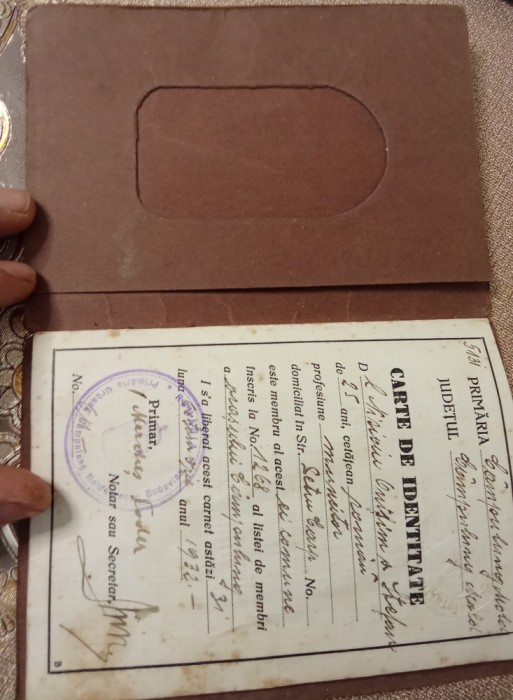 5131 PRIMĂRIA Câmpulung Mold.
JUDEȚUL Câmpulung Mold
CARTE DE IDENTITATE
D Onisim a Ștefan
de 25 ani, cetățean român
profesiune muncitor
domiciliat în Str. No.
este membru al acestei comune
Inscris la No. 1268 al listei de membri
a orașului Câmpulung
I s'a liberat acest carnet astăzi 31
luna anul 1932.-
Primar,
Notar sau Secretar,
No.
Primăria Câmpulung
B